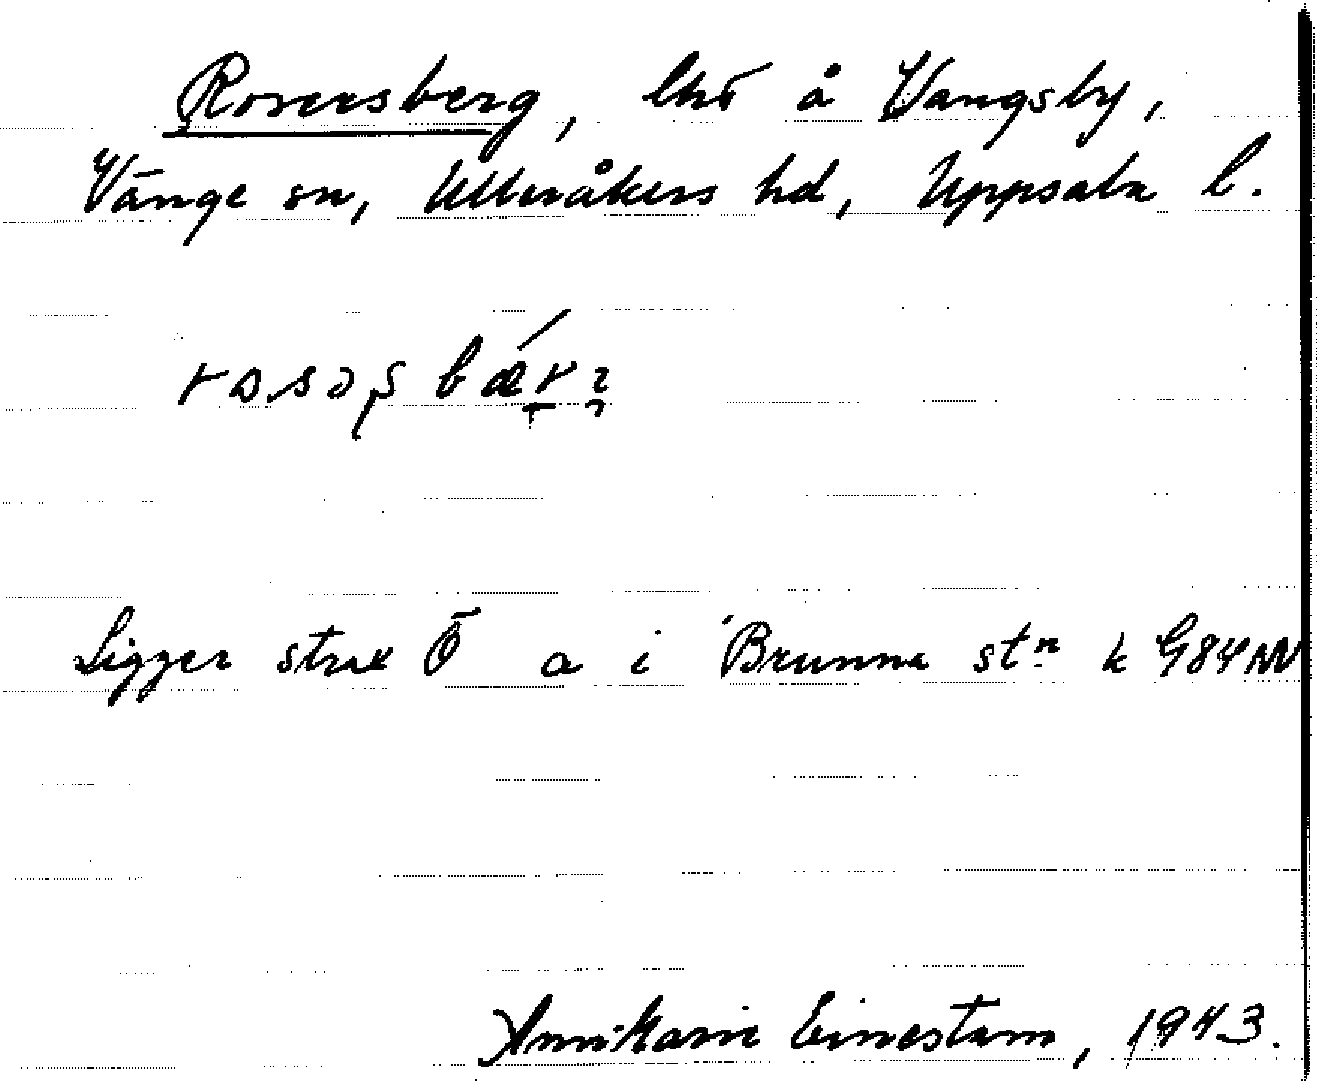 Rosersberg, lht å Vangsby,
Vänge sn, Ulleråkers hd, Uppsala l.
Ligger strax Ö a i Brunna stn k G84NV
Ann-Marie Einestam, 1943.